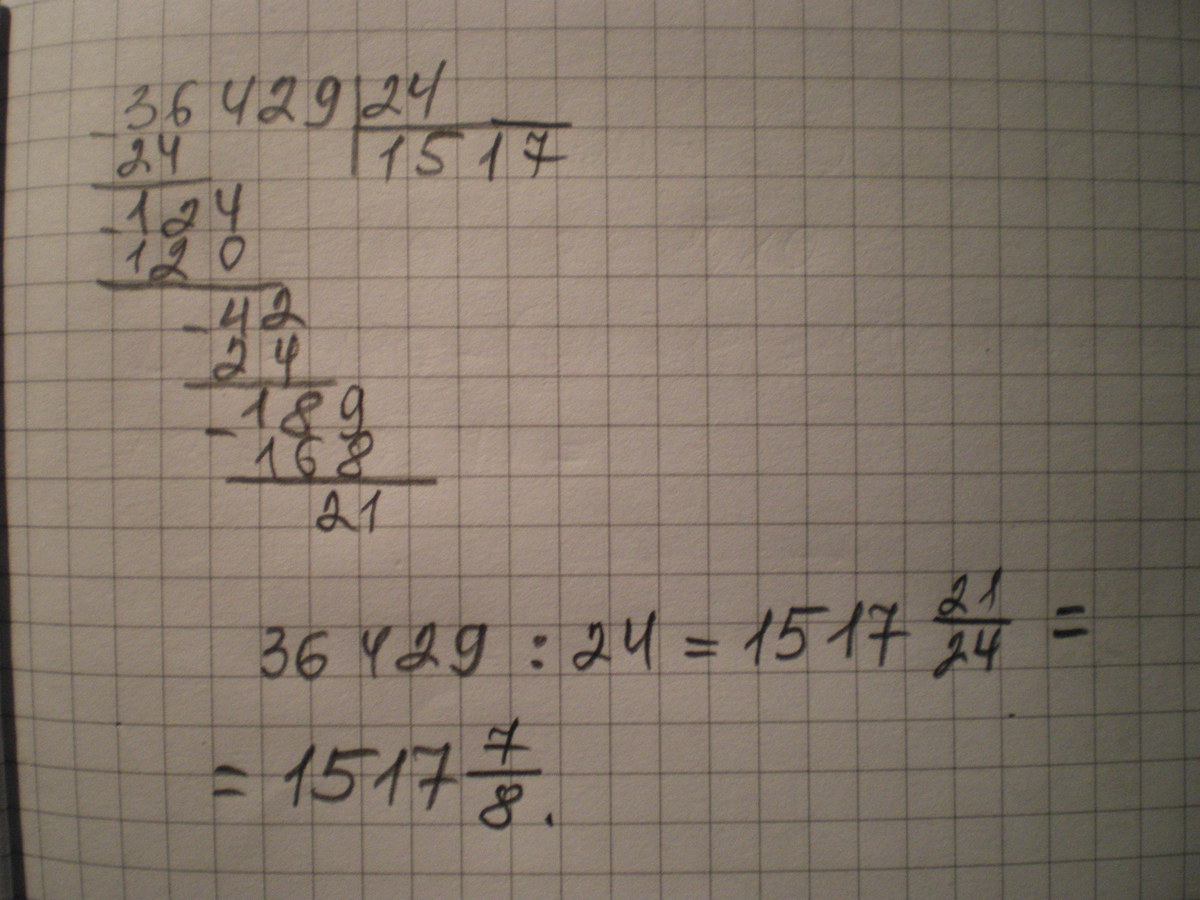 36429 24
24 1517
124
120
42
24
189
168
21
36429 : 24 = 1517 21/24 =
= 1517 7/8.